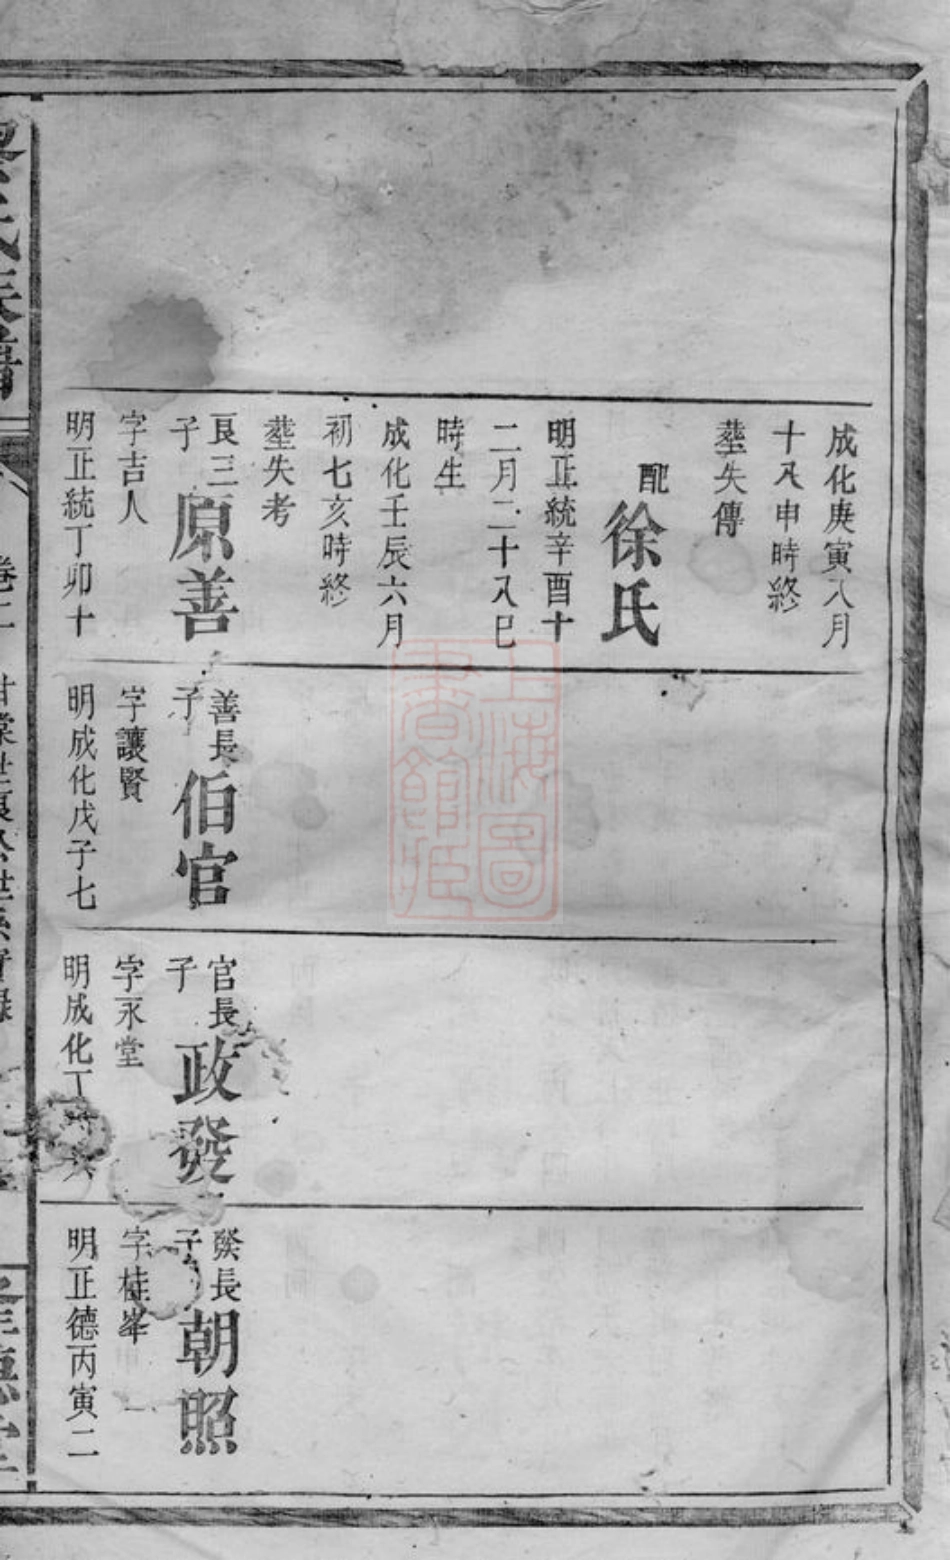 成化庚寅八月
十八申時終
塟失傳
配徐氏
明正統辛酉十
二月二十八巳
時生
成化壬辰六月
初七亥時終
塟失考
艮三子原善
字吉人
明正統丁卯十
善長子伯官
字讓賢
明成化戊子七
官長子政發
字永堂
明成化丁
發長子朝照
字桂峯
明正德丙寅二
氏族譜
卷二
上海圖書館藏